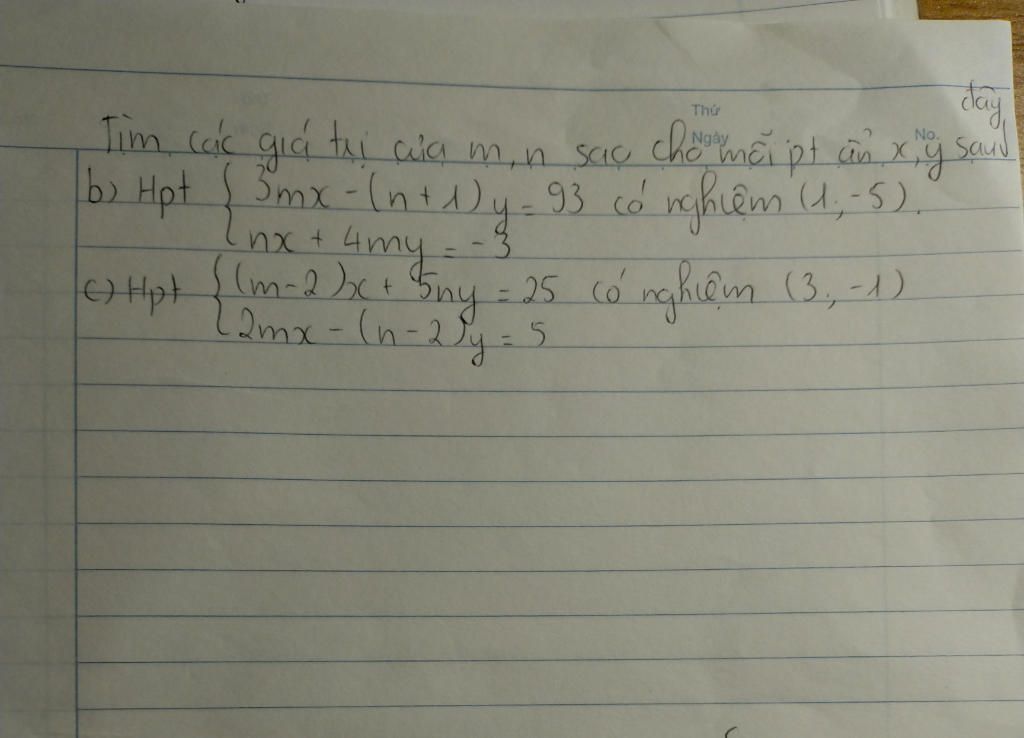 Thứ
Ngày
No.
đây
Tìm các giá trị của m, n sao cho mỗi pt ẩn x, y sau
b) Hpt { 3mx - (n + 1)y = 93 có nghiệm (1; -5).
nx + 4my = -3
c) Hpt { (m - 2)x + 5ny = 25 có nghiệm (3; -1)
2mx - (n - 2)y = 5